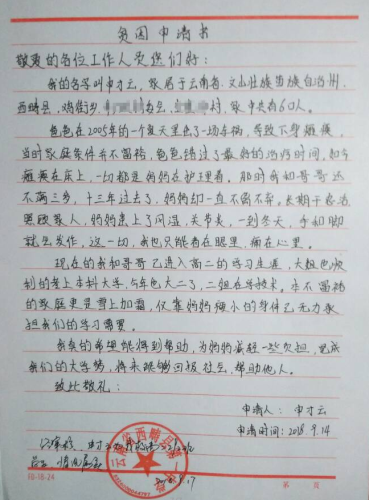 贫困申请书
敬爱的各位工作人员您们好：
我的名字叫申才云，家居于云南省、文山壮族苗族自治州、
西畴县，鸡街乡，村委会，村，家中共有6口人。
爸爸在2005年的一个夏天里出了一场车祸，导致下壁瘫痪，
当时家庭条件并不富裕，爸爸错过了最好的治疗时间，如今
瘫痪在床上，一切都是妈妈在护理着。那时我和哥哥还
不满三岁，十三年过去了，妈妈却一直不离不弃。长期于劳
家人，妈妈患上了风湿，关节炎，一到冬天，手和脚
就会发作，这一切，我也只能看在眼里，痛在心里。
现在的我和哥哥已进入高二的学习生涯，大姐也顺
利的考上本科大学，今年也大二了，二姐在学技术，本不富裕
的家庭更是雪上加霜，仅靠妈妈瘦小的身体已无力承
担我们的学习需要。
我真的希望能得到帮助，为妈妈省轻一些负担，完成
我们的大学梦，将来能够回报社会，帮助他人。
致此敬礼：
申请人：申才云
申请时间：2018.9.14
情况属实
云南省西畴县第一
16-16-24
第 页